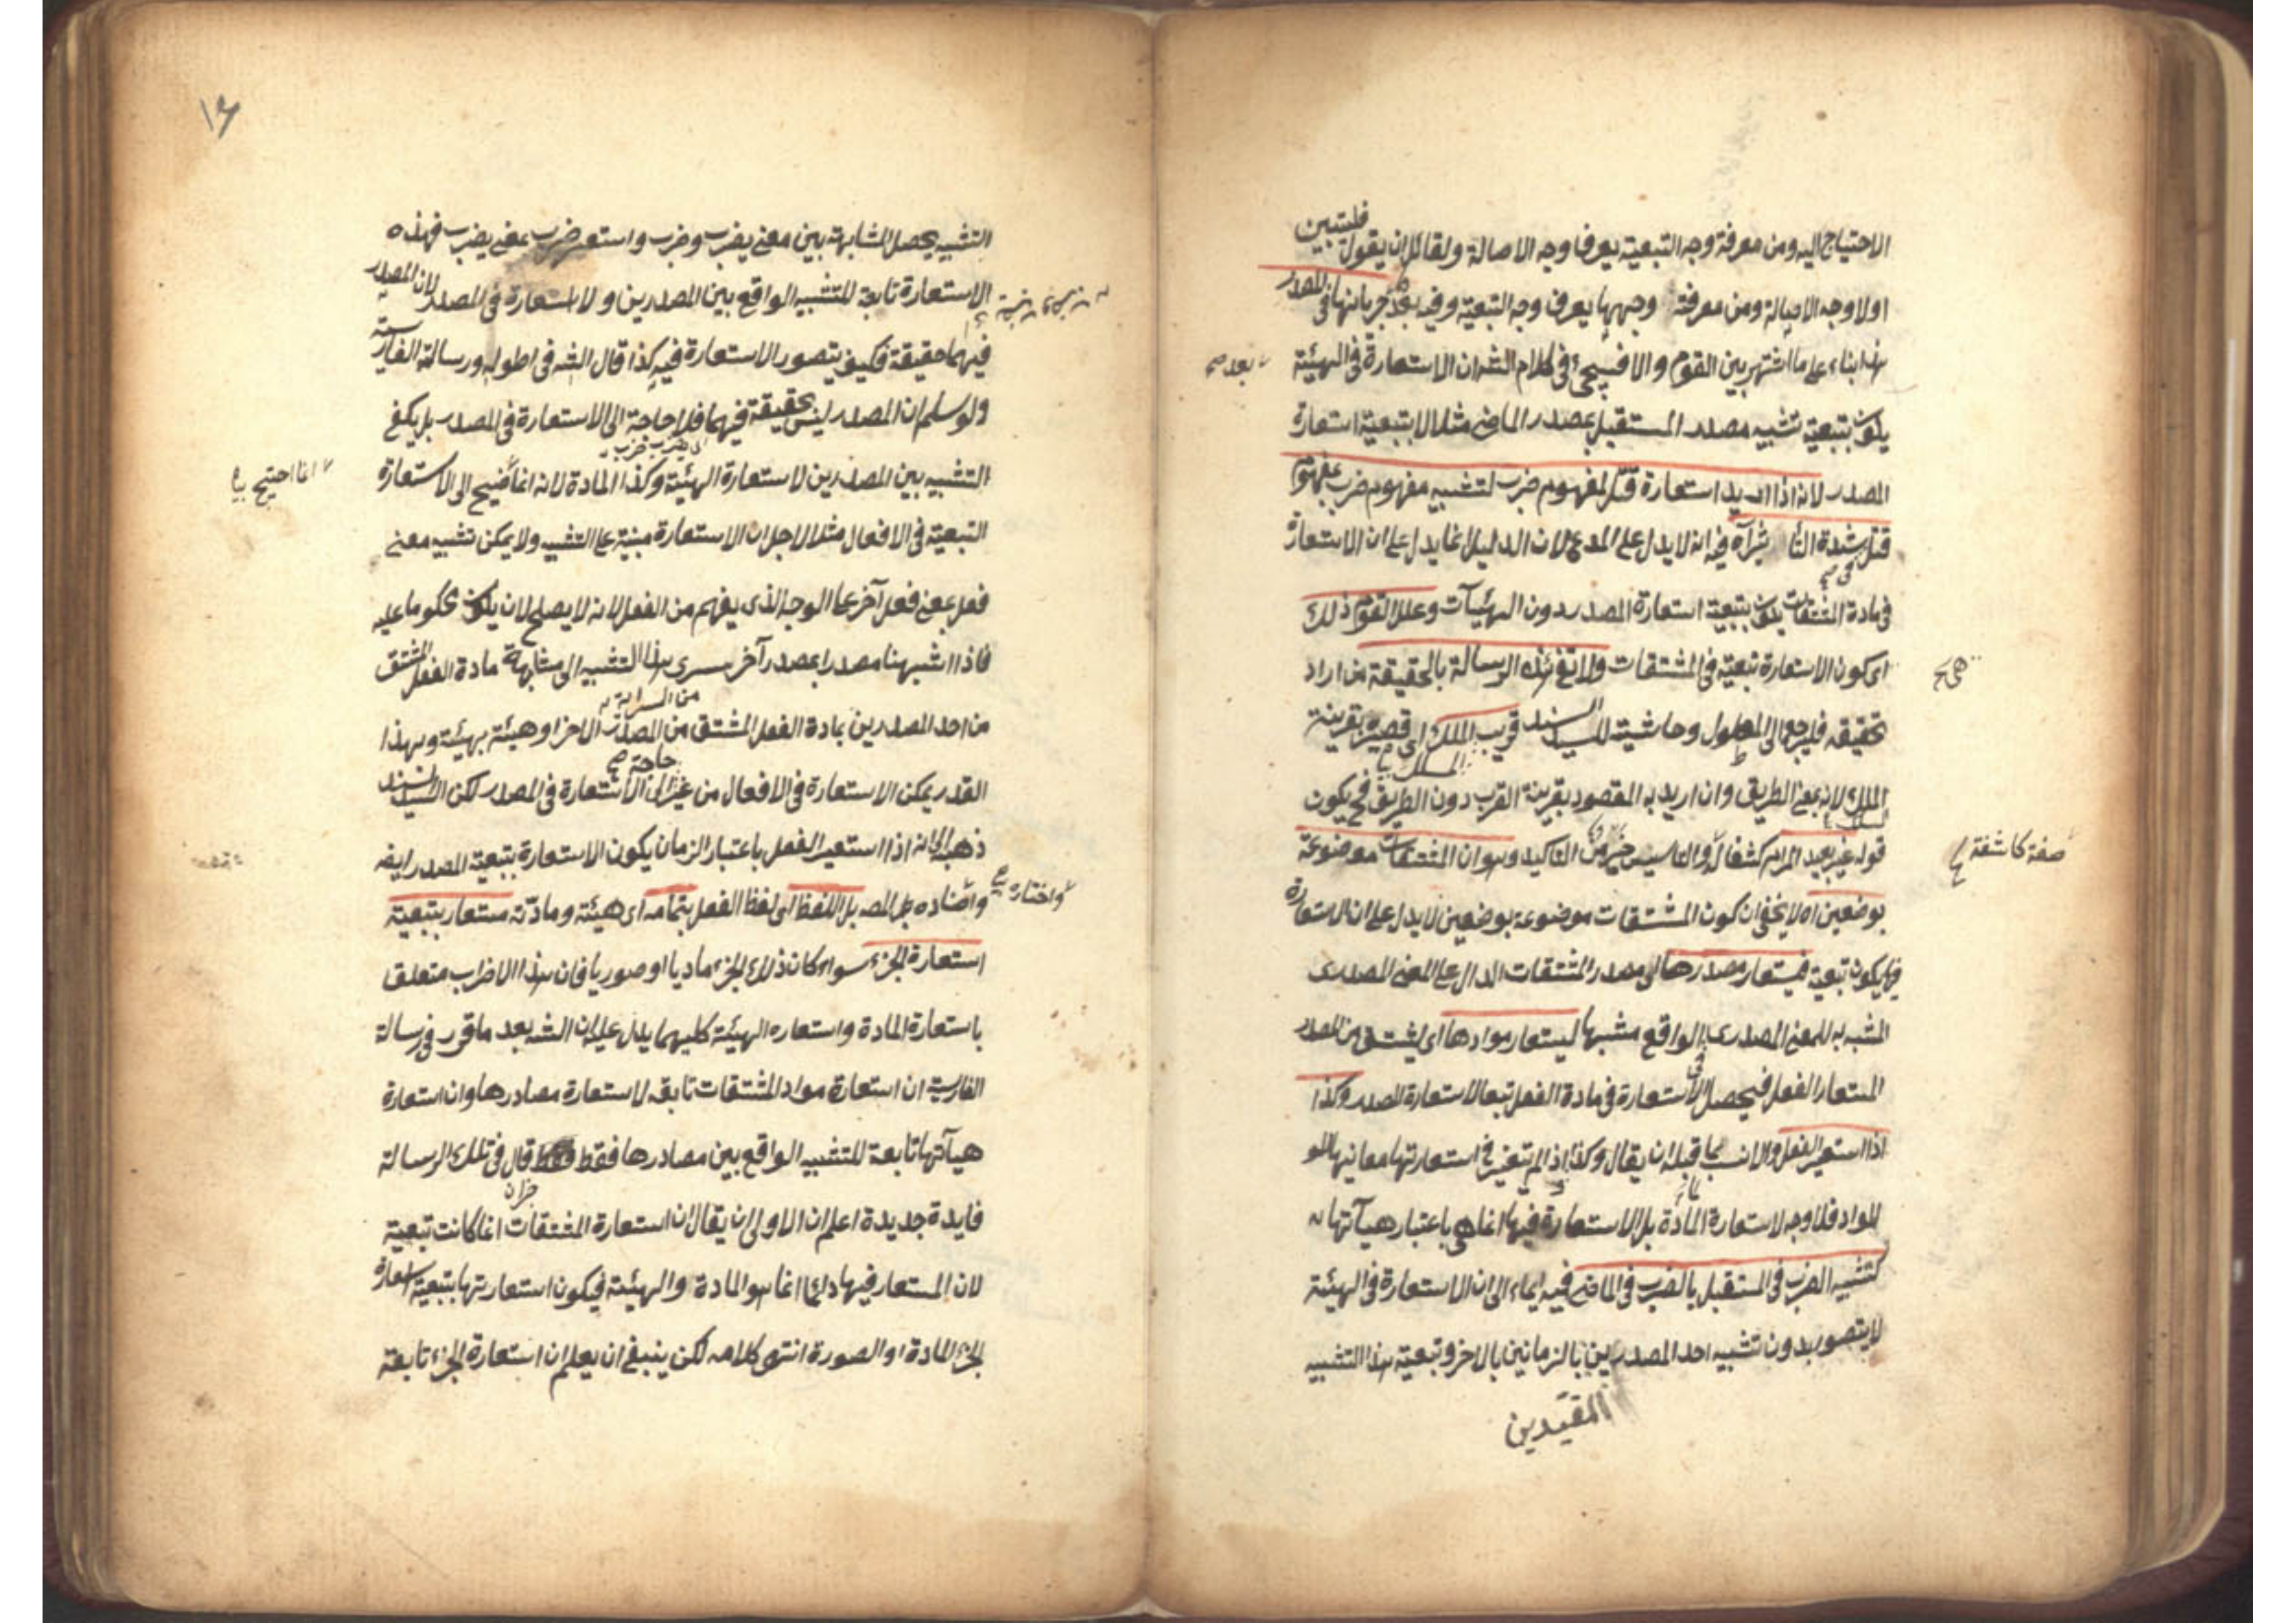 الاحتياج اليه ومن معرفة وجه التبعية يعرف وجه الاصالة ولقائل ان يقول فليتبين
اولا وجه الاصالة ومن معرفة وجهها يعرف وجه التبعية وفيه جريانها في المصدر
هذا بناء على ما اشتهر بين القوم والا فسيجئ في كلام الشه ان الاستعارة في الهيئة
بعد صح
يكون بتبعية تشبيه مصدر المستقبل بمصدر الماضى مثلا لا بتبعية استعارة
المصدر لانه اذا اريد استعارة قتل لمفهوم ضرب لتشبيه مفهوم ضرب بمفهوم
قتل بشدة التأثير آه فيه انه لا يدل على المدعى لان الدليل انما يدل على ان الاستعارة
في مادة المشتقات يكون بتبعية استعارة المصدر دون الهيئات وعلل القوم ذلك
اى كون الاستعارة تبعية في المشتقات ولا تفى هذه الرسالة بالحقيقة من اراد
هى
تحقيقه فليرجع الى المطول وحاشية للسيد السند قريب الملك اى قصيره بقرينة
المسلك
الملك لانه بمعنى الطريق وان اريد به المقصود بقرينة القرب دون الطريق فح يكون
قوله غير بعيد المرام كشفا له والتاسيس خير من التاكيد وهو ان المشتقات موضوعة
صفة كاشفة
بوضعين اه لا يخفى ان كون المشتقات موضوعة بوضعين لا يدل على ان الاستعارة
فيها يكون تبعية فيستعار مصدرها اى مصدر المشتقات الدال على المعنى المصدرى
المشبه به للمعنى المصدرى الواقع مشبها ليستعار موادها اى ليشتق من المصدر
المستعار الفعل فيحصل الاستعارة في مادة الفعل تبعا لاستعارة المصدر وكذا
اذا استعير الفعل والانسب بما قبله ان يقال وكذا اذا لم يتغير في استعارتها معانيها
للمواد فلا وجه لاستعارة المادة بل الاستعارة فيها انما هى باعتبار هيآتها
كتشبيه الضرب في المستقبل بالضرب في الماضى فيه ايماء الى ان الاستعارة في الهيئة
لا يتصور بدون تشبيه احد المصدرين بالزمانين بالاخر وتبعية هذا التشبيه
المقيدين
١٤
التشبيه يحصل المشابهة بين معنى يضرب وضرب واستعير ضرب بمعنى يضرب فهذه
الاستعارة تابعة للتشبيه الواقع بين المصدرين ولا استعارة في المصدر لان المصدر
فيهما حقيقة فكيف يتصور الاستعارة فيه كذا قال الشه في اطوله ورسالة الفارسية
ولو سلم ان المصدر ليس بحقيقة فيهما فلا حاجة الى الاستعارة في المصدر بل يكفى
التشبيه بين المصدرين لاستعارة الهيئة وكذا المادة لانه انما احتيج الى الاستعارة
انما احتيج
التبعية في الافعال مثلا لاجل ان الاستعارة مبنية على التشبيه ولا يمكن تشبيه معنى
فعل بمعنى فعل آخر على الوجه الذى يفهم من الفعل لانه لا يصلح لان يكون محكوما عليه
فاذا شبهنا مصدرا بمصدر آخر سرى هذا التشبيه الى مشابهة مادة الفعل المشتق
من احد المصدرين بمادة الفعل المشتق من المصدر الاخر او هيئة بهيئة وبهذا
من السراية
القدر يمكن الاستعارة في الافعال من غير حاجة الى الاستعارة في المصدر لكن السيد السند
ذهب الى انه اذا استعير الفعل باعتبار الزمان يكون الاستعارة بتبعية المصدر ايضا
واختاره المص بل اللفظ اى لفظ الفعل بتمامه اى هيئة ومادته مستعار بتبعية
واختاره
استعارة الجزء سواء كان ذلك الجزء ماديا او صوريا فان هذا الاضراب متعلق
باستعارة المادة واستعاره الهيئة كليهما يدل عليه ان الشه بعد ما قرر في رسالة
الفارسية ان استعارة مواد المشتقات تابعة لاستعارة مصادرها وان استعارة
هيآتها تابعة للتشبيه الواقع بين مصادرها فقط قال في تلك الرسالة
فايدة جديدة اعلم ان الاولى ان يقال ان استعارة المشتقات انما كانت تبعية
لان المستعار فيها دائما انما هو المادة والهيئة فيكون استعارتها بتبعية استعارة
الجزء المادة او الصورة انتهى كلامه لكن ينبغى ان يعلم ان استعارة الجزء تابعة